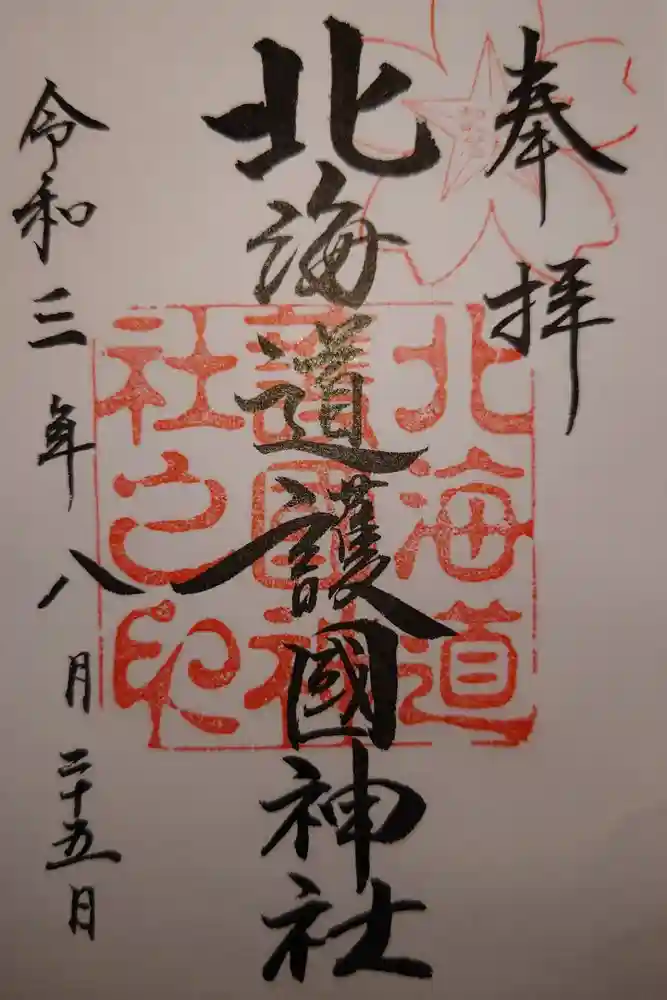 奉拝
北海道護國神社
北海道
護國神
社之印
令和三年八月二十五日